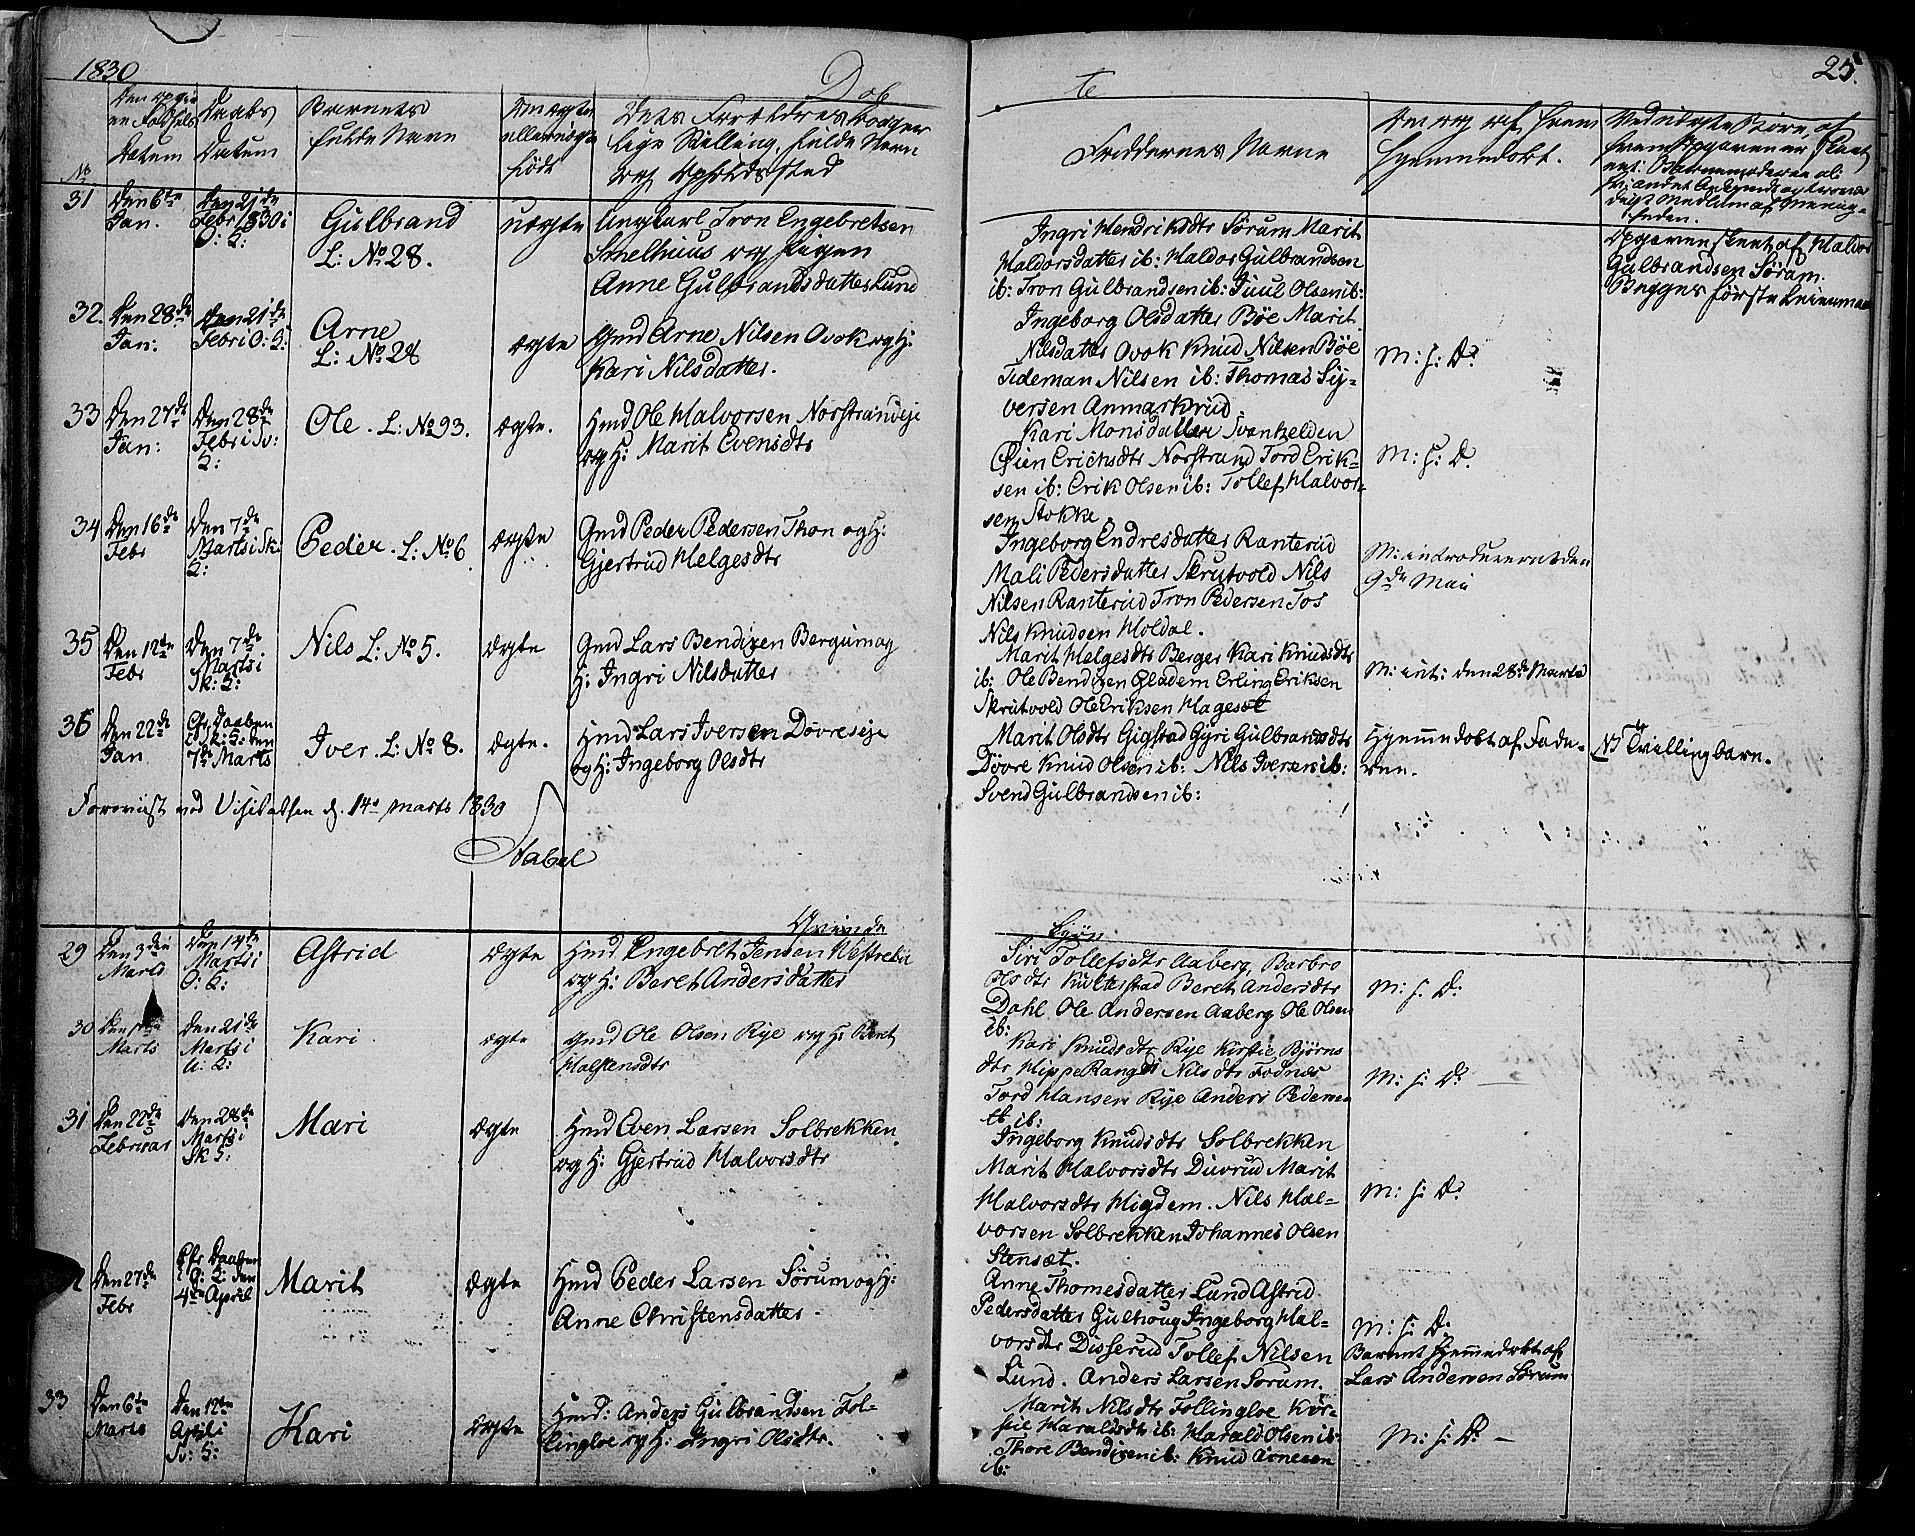 1830
Døb
te
25.
No
Den opgiv
ne Fødsels
Datum
Daabs
Datum
Barnets
fulde Navn
Om ægte
eller uægte
født
Dets Forældres borger
lige Stilling, fulde Navn
og Opholdssted
Fadderenes Navne
Om og af hvem
hjemmedøbt.
31
Den 6te
Jan.
Den 21de
Febr 1830 i
O: K:
Gulbrand
L: No 28.
uægte
Ungkarl Tron Engebretsen
Snelhuus og Pigen
Anne Gulbrandsdatter Lund
Ingri Hendriksdtr Sørum Marit
Haldorsdatter ib: Haldor Gulbrandsen
ib: Tron Gulbrandsen ib: Juul Olsen ib:
Opgaven skeet af Haldor
Gulbrandsen Sørum.
Begges første Leiermaal
32.
Den 28de
Jan:
Den 21de
Febr i O: K:
Arne
L: No 28
ægte
Gmd Arne Nilsen Ovok og H:
Kari Nilsdatter.
Ingeborg Olsdatter Bøe Marit
Nilsdatter Ovok Knud Nilsen Bøe
Tideman Nilsen ib: Thomas Sy-
versen Anmarkrud.
M: f: D:
33
Den 27de
Jan:
Den 28de
Febr i Sv:
K:
Ole. L: No 93.
ægte.
Hmd Ole Halvorsen Norstrandeje
og H: Marit Evensdtr
Kari Monsdatter Svenkelden
Øien Erichsdtr Norstrand Tord Erik-
sen ib: Erik Olsen ib: Tollef Halvor-
sen Stokke.
M: f: D.
34
Den 16de
Febr
Den 7de
Marts i Sk:
K:
Peder. L: No 6
ægte
Gmd Peder Pedersen Thon og H:
Gjertrud Helgesdtr
Ingeborg Endresdatter Ranterud
Mali Pedersdatter Skrutvold Nils
Nilsen Ranterud Tron Pedersen Fos
Nils Knudsen Holdal.
M: introduceeret den
9de Mai
35
Den 12te
Febr
Den 7de
Marts i
Sk: K:
Nils L: No 5.
ægte
Gmd Lars Bendixen Bergum og
H: Ingri Nilsdatter
Marit Helgesdtr Berger Kari Knudsdtr
ib: Ole Bendixen Gladem Erling Eriksen
Skrutvold Ole Eriksen Hagesæt
M: int: den 28de Marts
36
Den 22de
Jan
Cfr. Daaben
i Sk: K: den
7de Marts
Iver. L: No 8.
ægte.
Hmd Lars Iversen Dövreeje
og H: Ingeborg Olsdtr
Marit Olsdtr Gigstad Gyri Gulbrandsdtr
Dövre Knud Olsen ib: Nils Iversen ib:
Svend Gulbrandsen ib:
Hjemmedøbt af Fade-
ren.
NB Tvillingbarn.
Foreviist ved Visitatsen d. 14de Marts 1830
Stabel
Qvinde
Kjøn
29
Den 3den
Marts
Den 14de
Marts i
O: K:
Astrid
ægte
Hmd Engebret Jensen Westrebø
og H: Beret Andersdatter
Siri Tollefsdtr Aaberg, Barbro
Olsdtr Kulterstad Beret Andersdtr
Dahl Ole Andersen Aaberg Ole Olsen
ib:
M: f. D:
30
Marts
Den 21de
Marts i
U: K:
Kari
ægte
Gmd Ole Olsen Rye og H: Beret
Halstensdtr
Kari Knudsdtr Rye Kirstie Bjørns
dtr Hippe Rangdi Nilsdtr Fodnæs
Tord Hansen Rye Anders Pedersen
ib:
M: f: D:
31
Den 22de
Februar
Den 28de
Marts i
Sk K:
Mari
ægte
Hmd Even Larsen Solbrekken
og H: Gjertrud Halvorsdtr
Ingeborg Knudsdtr Solbrekken
Marit Halvorsdtr Duvrud Marit
Halvorsdtr Migdem. Nils Hal-
vorsen Solbrekken Johannes Olsen
Stensæt.
M: f: D:
Den 27de
Febr
Cfr Daaben
i O: K: den
4de April
Marit
ægte
Hmd Peder Larsen Sørum og H:
Anne Christensdatter.
Anne Thomesdatter Lund Astrid
Pedersdatter Gulhoug Ingeborg Hal-
vorsdtr Disserud Tollef Nilsen
Lund. Anders Larsen Sørum.
M: f: D.
Barnet hjemmedøbt af
Lars Andersen Sørum
33
Den 6te
Marts
Den 12te
April i
Sv: K:
Kari
ægte
Hmd: Anders Gulbrandsen Fol-
lingloe og H: Ingri Olsdtr.
Marit Nilsdtr Follingloe Kir-
stie Haraldsdtr ib: Harald Olsen ib:
Thore Bendixen ib: Knud Arnesen
ib:
M: f: D: —